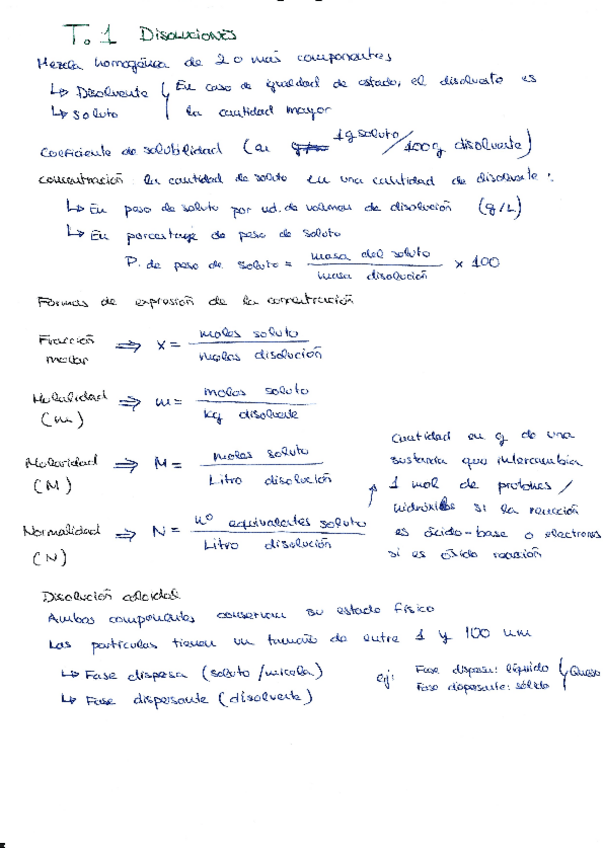 T.1 Disoluciones
Mezcla homogénea de 2 o más componentes
↳ Disolvente { En caso de igualdad de estado, el disolvente es
↳ Soluto la cantidad mayor
Coeficiente de solubilidad (en 1g soluto/100g disolvente)
Concentración la cantidad de soluto en una cantidad de disolvente:
↳ En peso de soluto por ud. de volumen de disolución (g/L)
↳ En porcentaje de peso de soluto
P. de peso de soluto = masa del soluto / masa disolución × 100
Formas de expresión de la concentración
Fracción molar ⇒ X = moles soluto / moles disolución
Molalidad (m) ⇒ m = moles soluto / kg disolvente
Molaridad (M) ⇒ M = moles soluto / Litro disolución
Normalidad (N) ⇒ N = nº equivalentes soluto / Litro disolución
Cantidad en g de una
sustancia que intercambia
1 mol de protones/
hidróxidos si la reacción
es ácido-base o electrones
si es óxido reacción
Disolución coloidal
Ambos componentes conservan su estado físico
Las partículas tienen un tamaño de entre 1 y 100 nm
↳ Fase dispersa (soluto/micela)
↳ Fase dispersante (disolvente)
ej: Fase dispersa: líquido } Queso
Fase dispersante: sólido